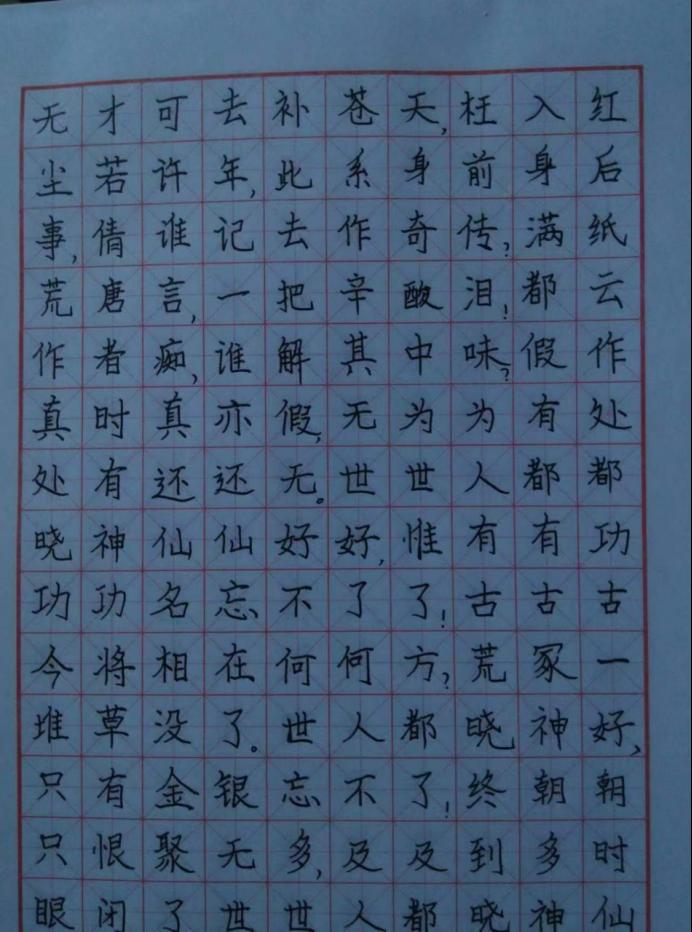 无才可去补苍天,枉入红
尘若许年,此系身前身后
事,倩谁记去作奇传?满纸
荒唐言,一把辛酸泪!都云
作者痴,谁解其中味?假作
真时真亦假,无为为有处
处有还还无。世世人都都
晓神仙仙好好,惟有有功
功功名忘不了了!古古古
今将相在何何方?荒冢一
堆草没了。世人都晓神好,
只有金银忘不了!终朝朝
只恨聚无多,及及到多时
眼闭了世世人都晓神仙